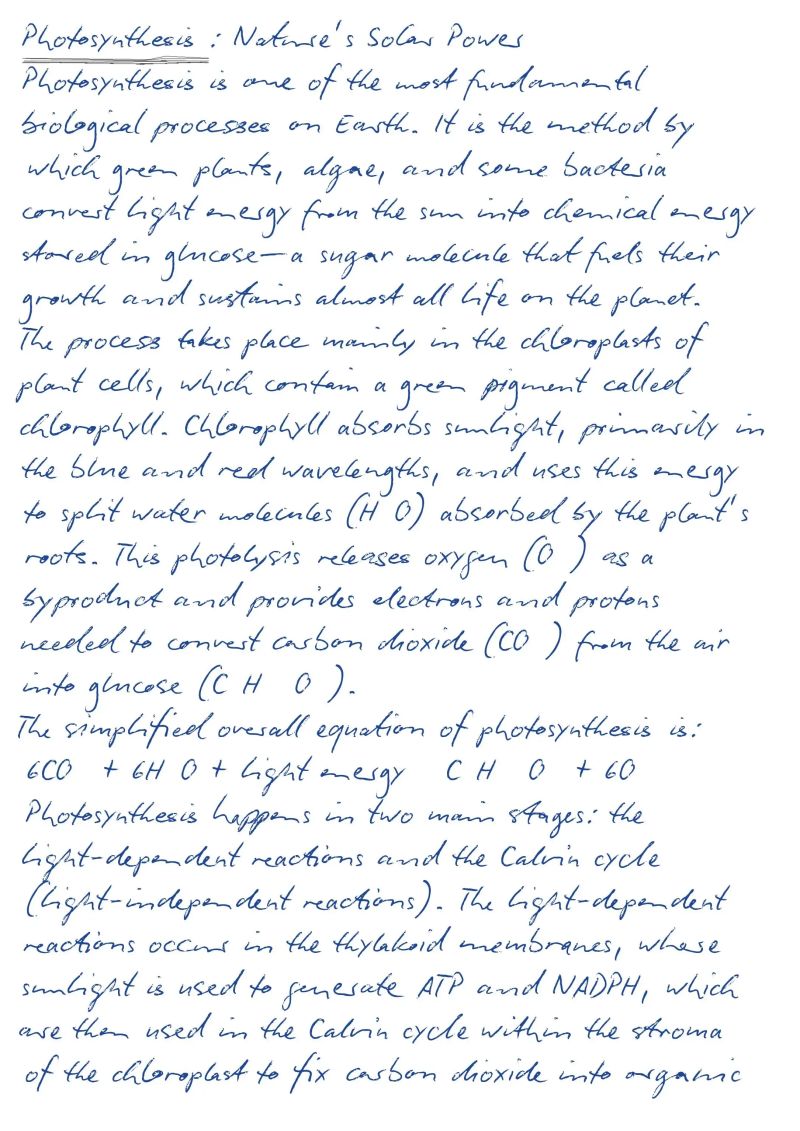 Photosynthesis : Nature's Solar Power
Photosynthesis is one of the most fundamental
biological processes on Earth. It is the method by
which green plants, algae, and some bacteria
convert light energy from the sun into chemical energy
stored in glucose—a sugar molecule that fuels their
growth and sustains almost all life on the planet.
The process takes place mainly in the chloroplasts of
plant cells, which contain a green pigment called
chlorophyll. Chlorophyll absorbs sunlight, primarily in
the blue and red wavelengths, and uses this energy
to split water molecules (H O) absorbed by the plant's
roots. This photolysis releases oxygen (O ) as a
byproduct and provides electrons and protons
needed to convert carbon dioxide (CO ) from the air
into glucose (C H O ).
The simplified overall equation of photosynthesis is:
6CO + 6H O + light energy C H O + 6O
Photosynthesis happens in two main stages: the
light-dependent reactions and the Calvin cycle
(light-independent reactions). The light-dependent
reactions occur in the thylakoid membranes, where
sunlight is used to generate ATP and NADPH, which
are then used in the Calvin cycle within the stroma
of the chloroplast to fix carbon dioxide into organic